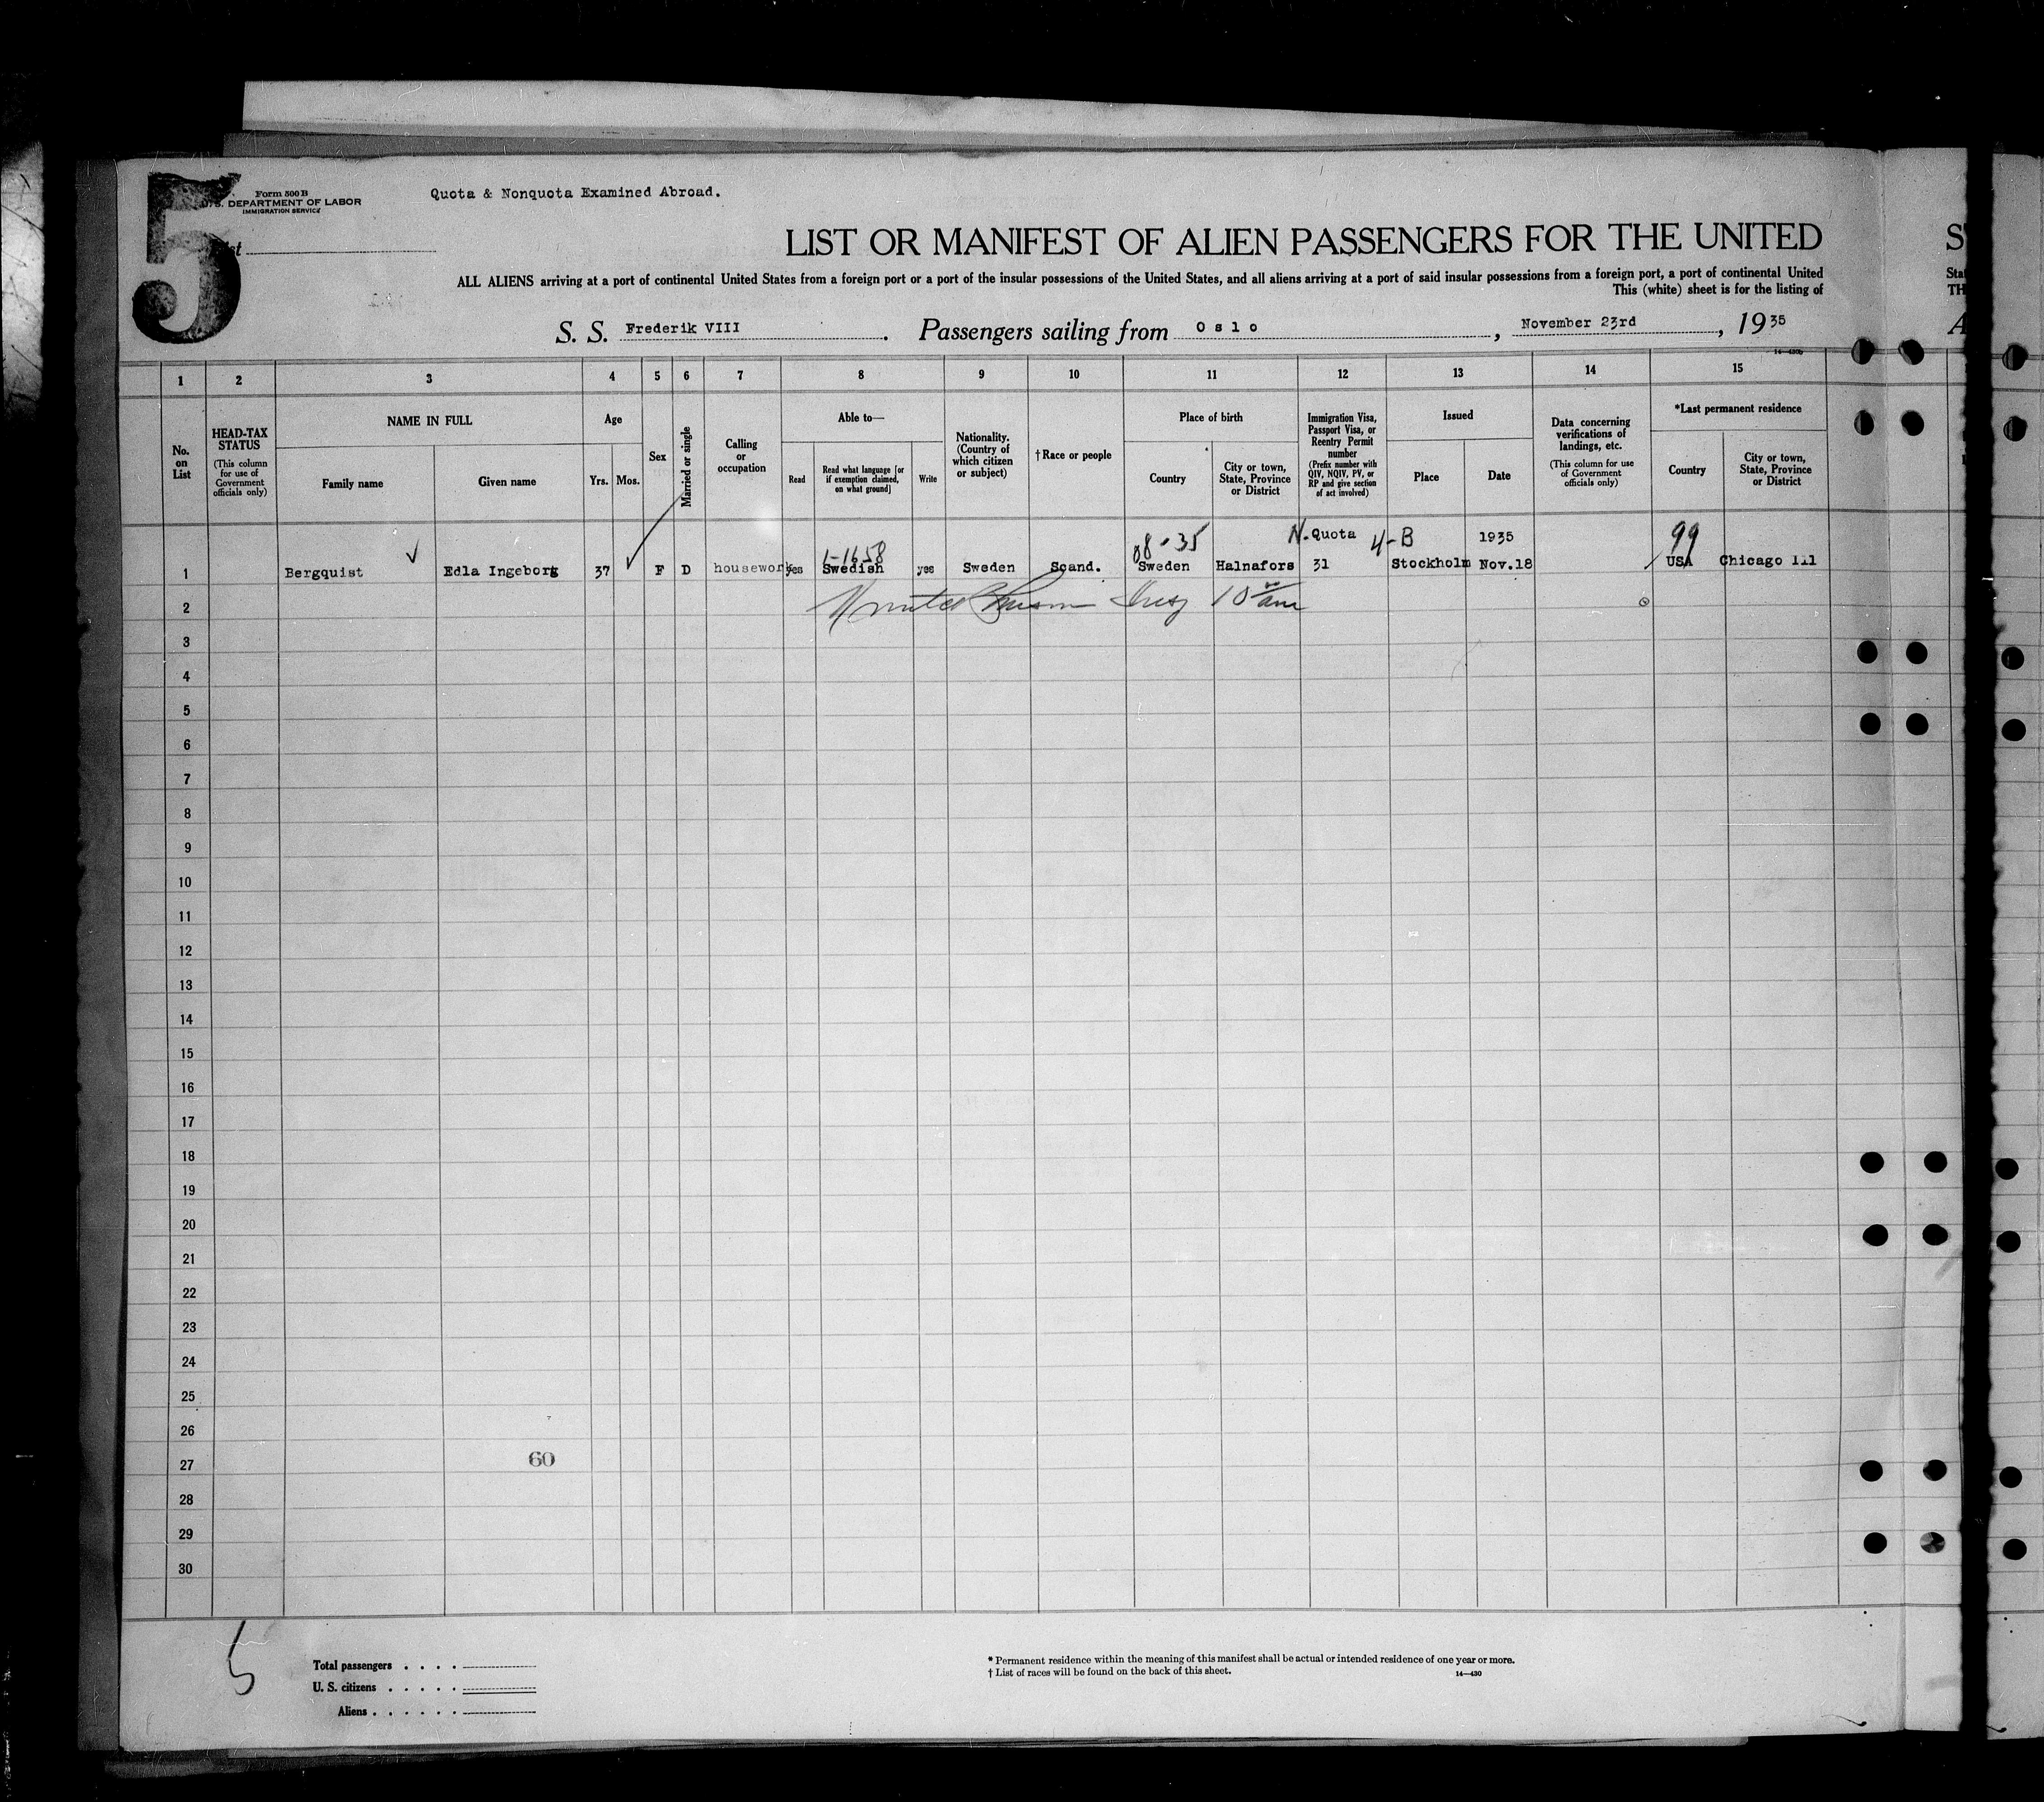 5
Form 500 B
U. S. DEPARTMENT OF LABOR
IMMIGRATION SERVICE
Quota & Nonquota Examined Abroad.
LIST OR MANIFEST OF ALIEN PASSENGERS FOR THE UNITED
ALL ALIENS arriving at a port of continental United States from a foreign port or a port of the insular possessions of the United States, and all aliens arriving at a port of said insular possessions from a foreign port, a port of continental United
This (white) sheet is for the listing of
S. S. Frederik VIII. Passengers sailing from Oslo, November 23rd, 1935
14—430b
1 2 3 4 5 6 7 8 9 10 11 12 13 14 15
No. on List
HEAD-TAX STATUS (This column for use of Government officials only)
NAME IN FULL
Family name Given name
Age
Yrs. Mos.
Sex
Married or single
Calling or occupation
Able to—
Read
Read what language [or if exemption claimed, on what ground]
Write
Nationality. (Country of which citizen or subject)
†Race or people
Place of birth
Country
City or town, State, Province or District
Immigration Visa, Passport Visa, or Reentry Permit number (Prefix number with QIV, NQIV, PV, or RP and give section of act involved)
Issued
Place Date
Data concerning verifications of landings, etc. (This column for use of Government officials only)
*Last permanent residence
Country
City or town, State, Province or District
1-1658 08-35 N.Quota 4-B 1935 99
1 Bergquist Edla Ingeborg 37 F D housework yes Swedish yes Sweden Scand. Sweden Halnafors 31 Stockholm Nov.18 USA Chicago Ill
2
3
4
5
6
7
8
9
10
11
12
13
14
15
16
17
18
19
20
21
22
23
24
25
26
27
28
29
30
60
5
Total passengers . . . .
U. S. citizens . . . . .
Aliens . . . . . .
* Permanent residence within the meaning of this manifest shall be actual or intended residence of one year or more.
† List of races will be found on the back of this sheet.
14—430